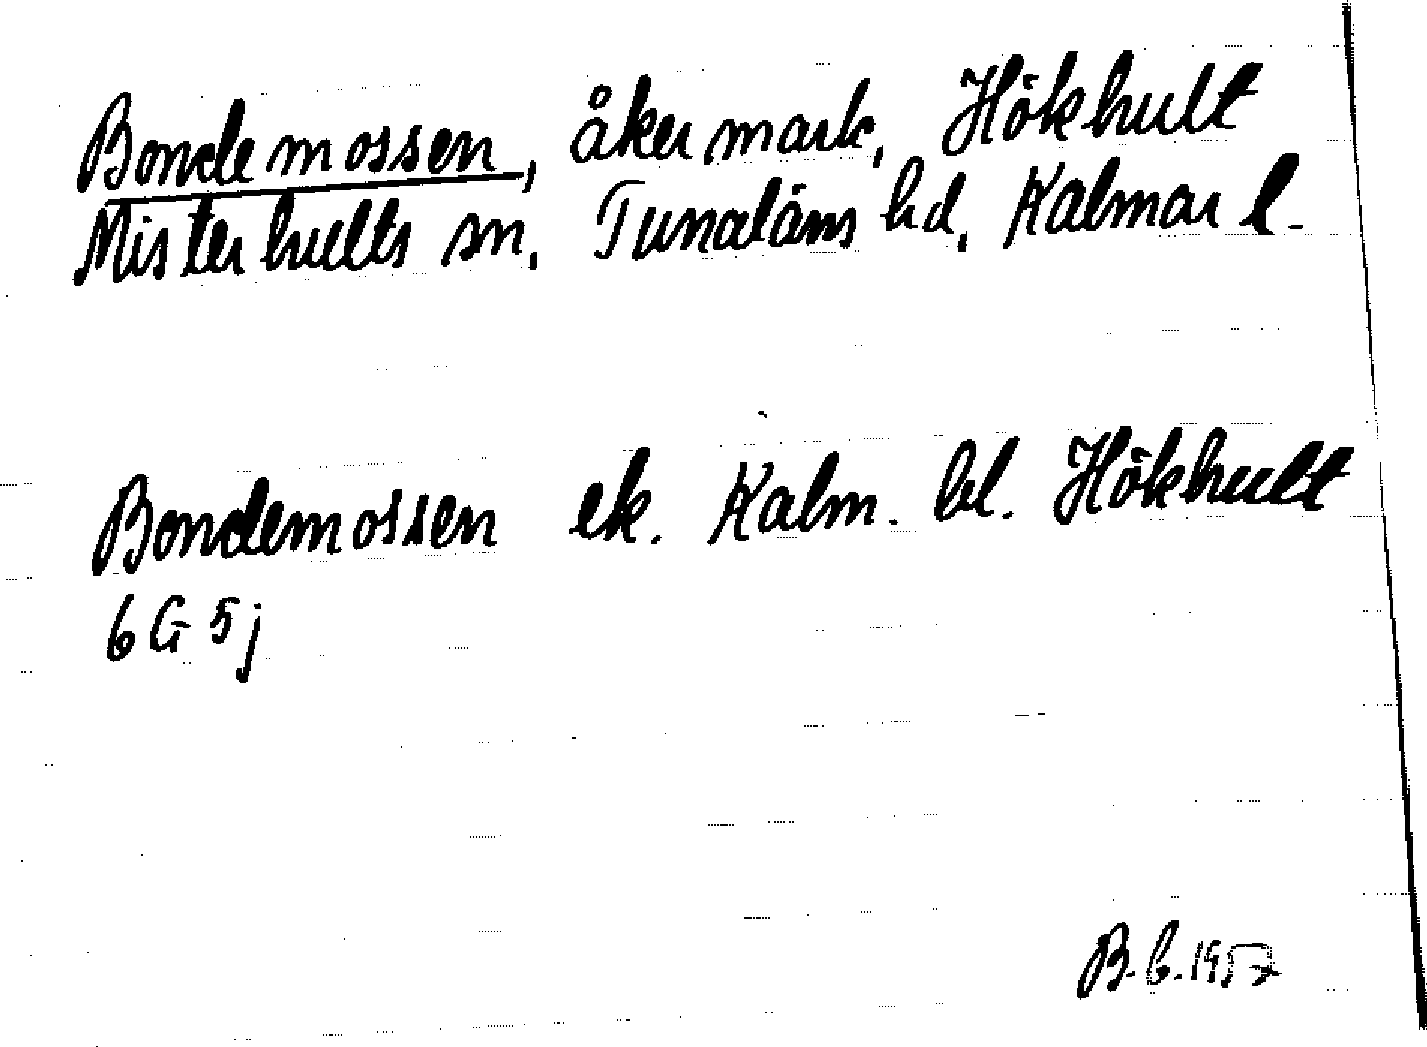 Bondemossen, åkermark, Hökhult
Misterhults sn, Tunaläns hd, Kalmar l.
Bondemossen ek. Kalm. bl. Hökhult
6G 5j
B.L. 1957